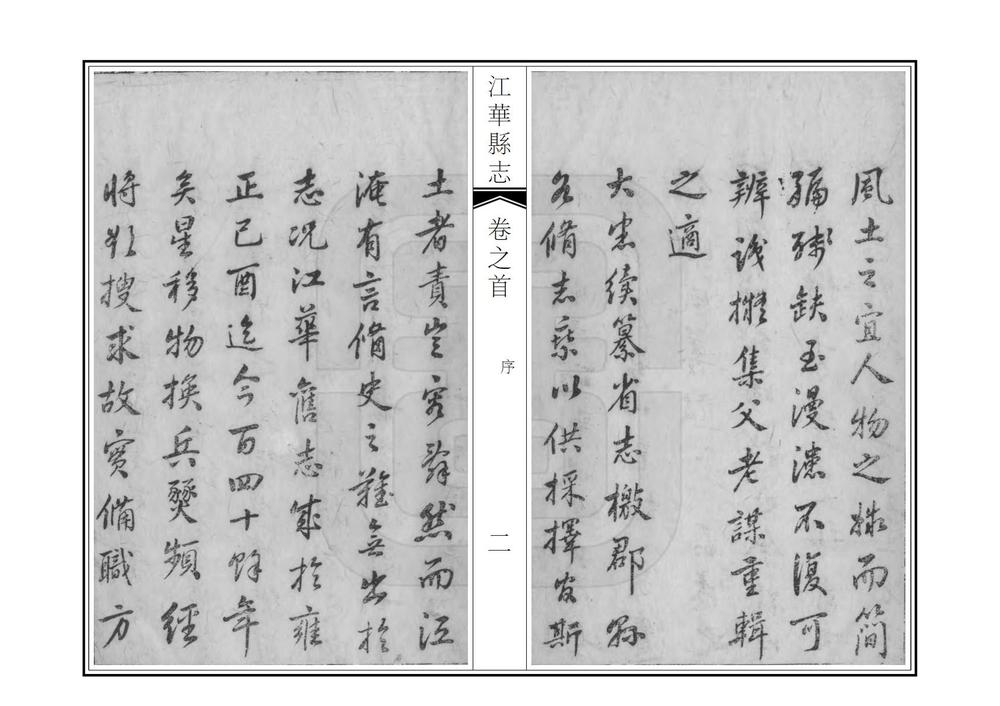 風土之宜人物之而簡
編殘缺至漫漶不復可
辨識擬集父老謀重輯
之適
大憲續纂省志檄郡縣
各脩志乘以供採擇官斯
江華縣志 卷之首 序 二
土者責豈容辭然而江
淹有言脩史之難無出於
志況江華舊志成於雍
正己酉迄今百四十餘年
矣星移物換兵燹頻經
將欲搜求故實備職方